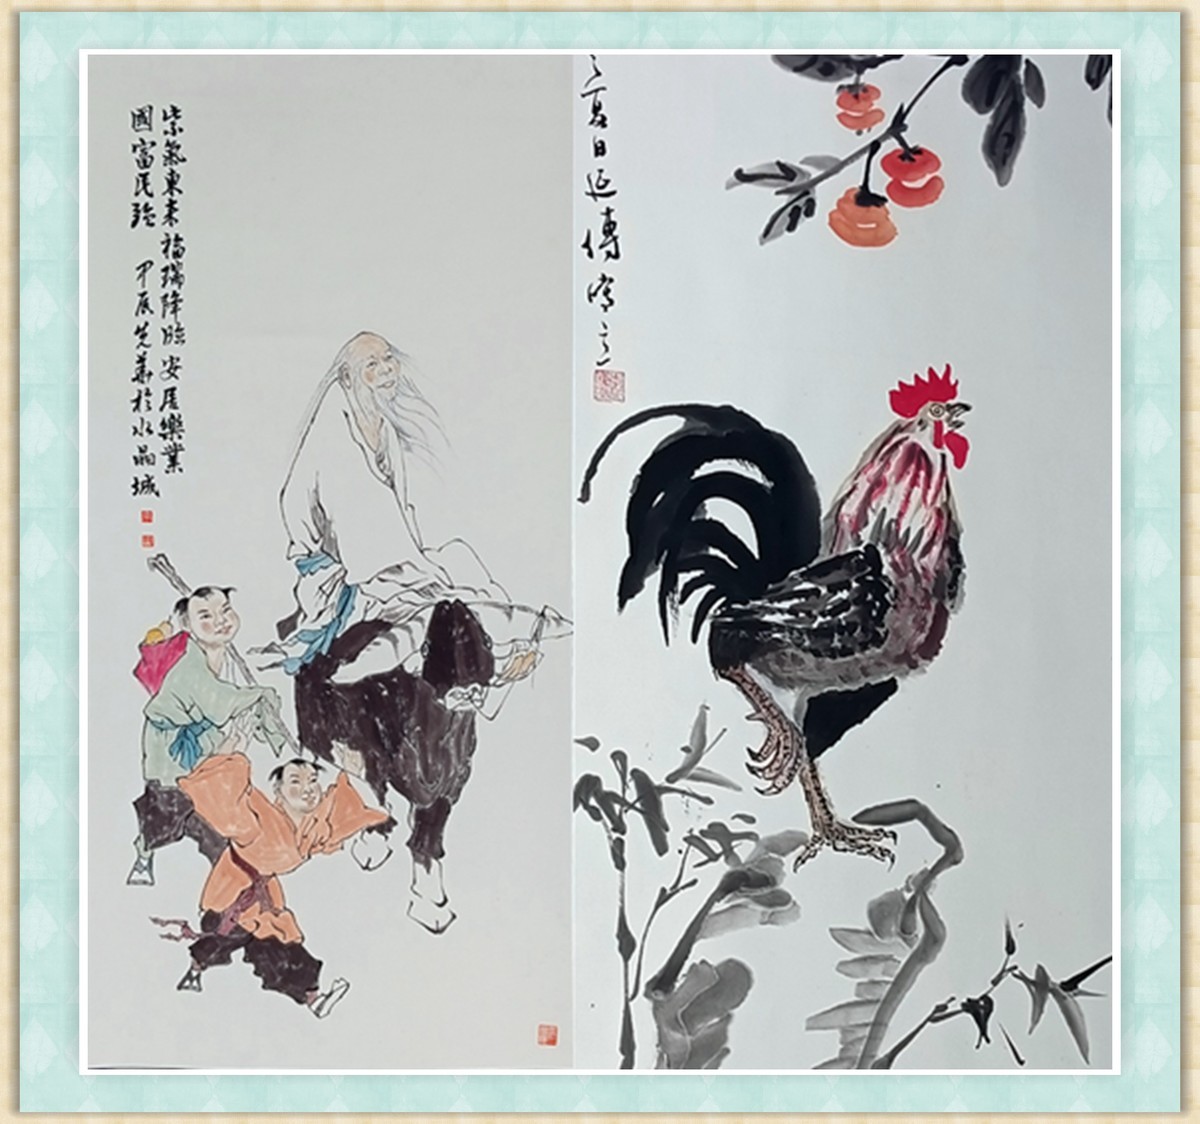 紫氣東來福瑞降臨安居樂業
國富民強 甲辰先華於水晶城
夏日延傳